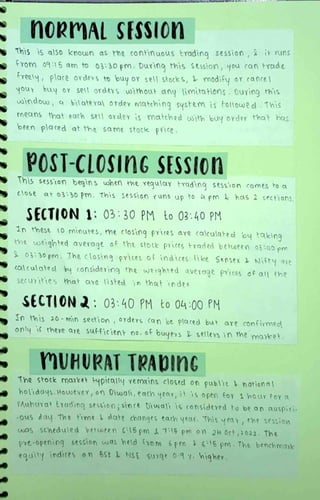 NORMAL SESSION
This is also known as the continuous trading session, & it runs
from 09:15 am to 03:30 pm. During this session, you can trade
freely, place orders to buy or sell stocks, & modify or cancel
your buy or sell orders without any limitations. During this
window, a bilateral order matching system is followed. This
means that each sell order is matched with buy order that has
been placed at the same stock price.
POST-CLOSING SESSION
This session begins when the regular trading session comes to a
close at 03:30 pm. This session runs up to 4 pm & has 2 sections.
SECTION 1: 03:30 PM to 03:40 PM
In these 10 minutes, the closing prices are calculated by taking
the weighted average of the stock prices traded between 03:00 pm
& 03:30 pm. The closing prices of indices like Sensex & Nifty are
calculated by considering the weighted average prices of all the
securities that are listed in that index
SECTION 2: 03:40 PM to 04:00 PM
In this 20-min section, orders can be placed but are confirmed
only if there are sufficient no. of buyers & sellers in the market.
MUHURAT TRADING
The stock market typically remains closed on public & national
holidays. However, on Diwali, each year, it is open for 1 hour for a
Muhurat trading session; since Diwali is considered to be an auspici-
-ous day. The time & date changes each year. This year, the session
was scheduled between 6:15 pm & 7:15 pm on 24 Oct, 2022. The
pre-opening session was held from 6 pm & 6:15 pm. The benchmark
equity indices on BSE & NSE surge 0.9 %. higher.